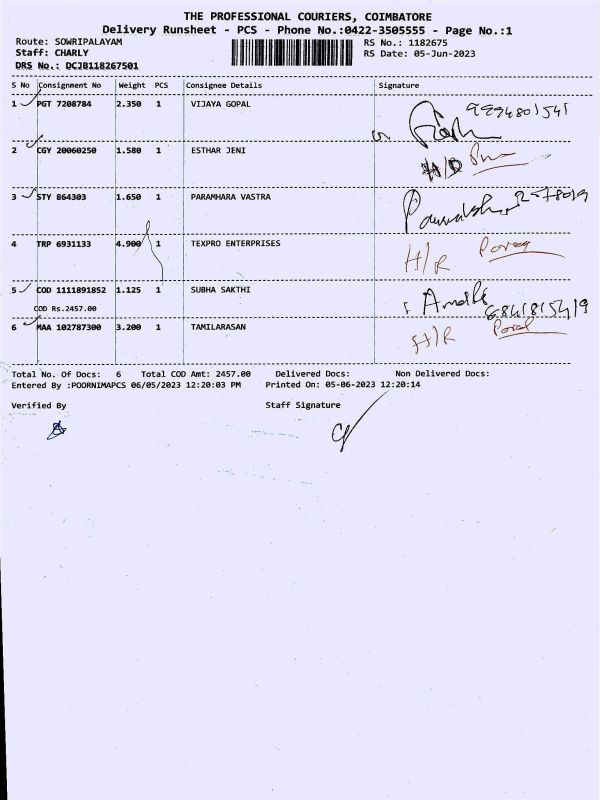 THE PROFESSIONAL COURIERS, COIMBATORE
Delivery Runsheet - PCS - Phone No.:0422-3505555 - Page No.:1
Route: SOWRIPALAYAM RS No.: 1182675
Staff: CHARLY RS Date: 05-Jun-2023
DRS No.: DCJB118267501
S No Consignment No Weight PCS Consignee Details Signature
1 PGT 7208784 2.350 1 VIJAYA GOPAL
2 CGY 20060250 1.580 1 ESTHAR JENI H/D
3 STY 864303 1.650 1 PARAMHARA VASTRA
4 TRP 6931133 4.900 1 TEXPRO ENTERPRISES H/R
5 COD 1111891852 1.125 1 SUBHA SAKTHI
COD Rs.2457.00
6 MAA 102787300 3.200 1 TAMILARASAN H/R
Total No. Of Docs: 6 Total COD Amt: 2457.00 Delivered Docs: Non Delivered Docs:
Entered By :POORNIMAPCS 06/05/2023 12:20:03 PM Printed On: 05-06-2023 12:20:14
Verified By Staff Signature